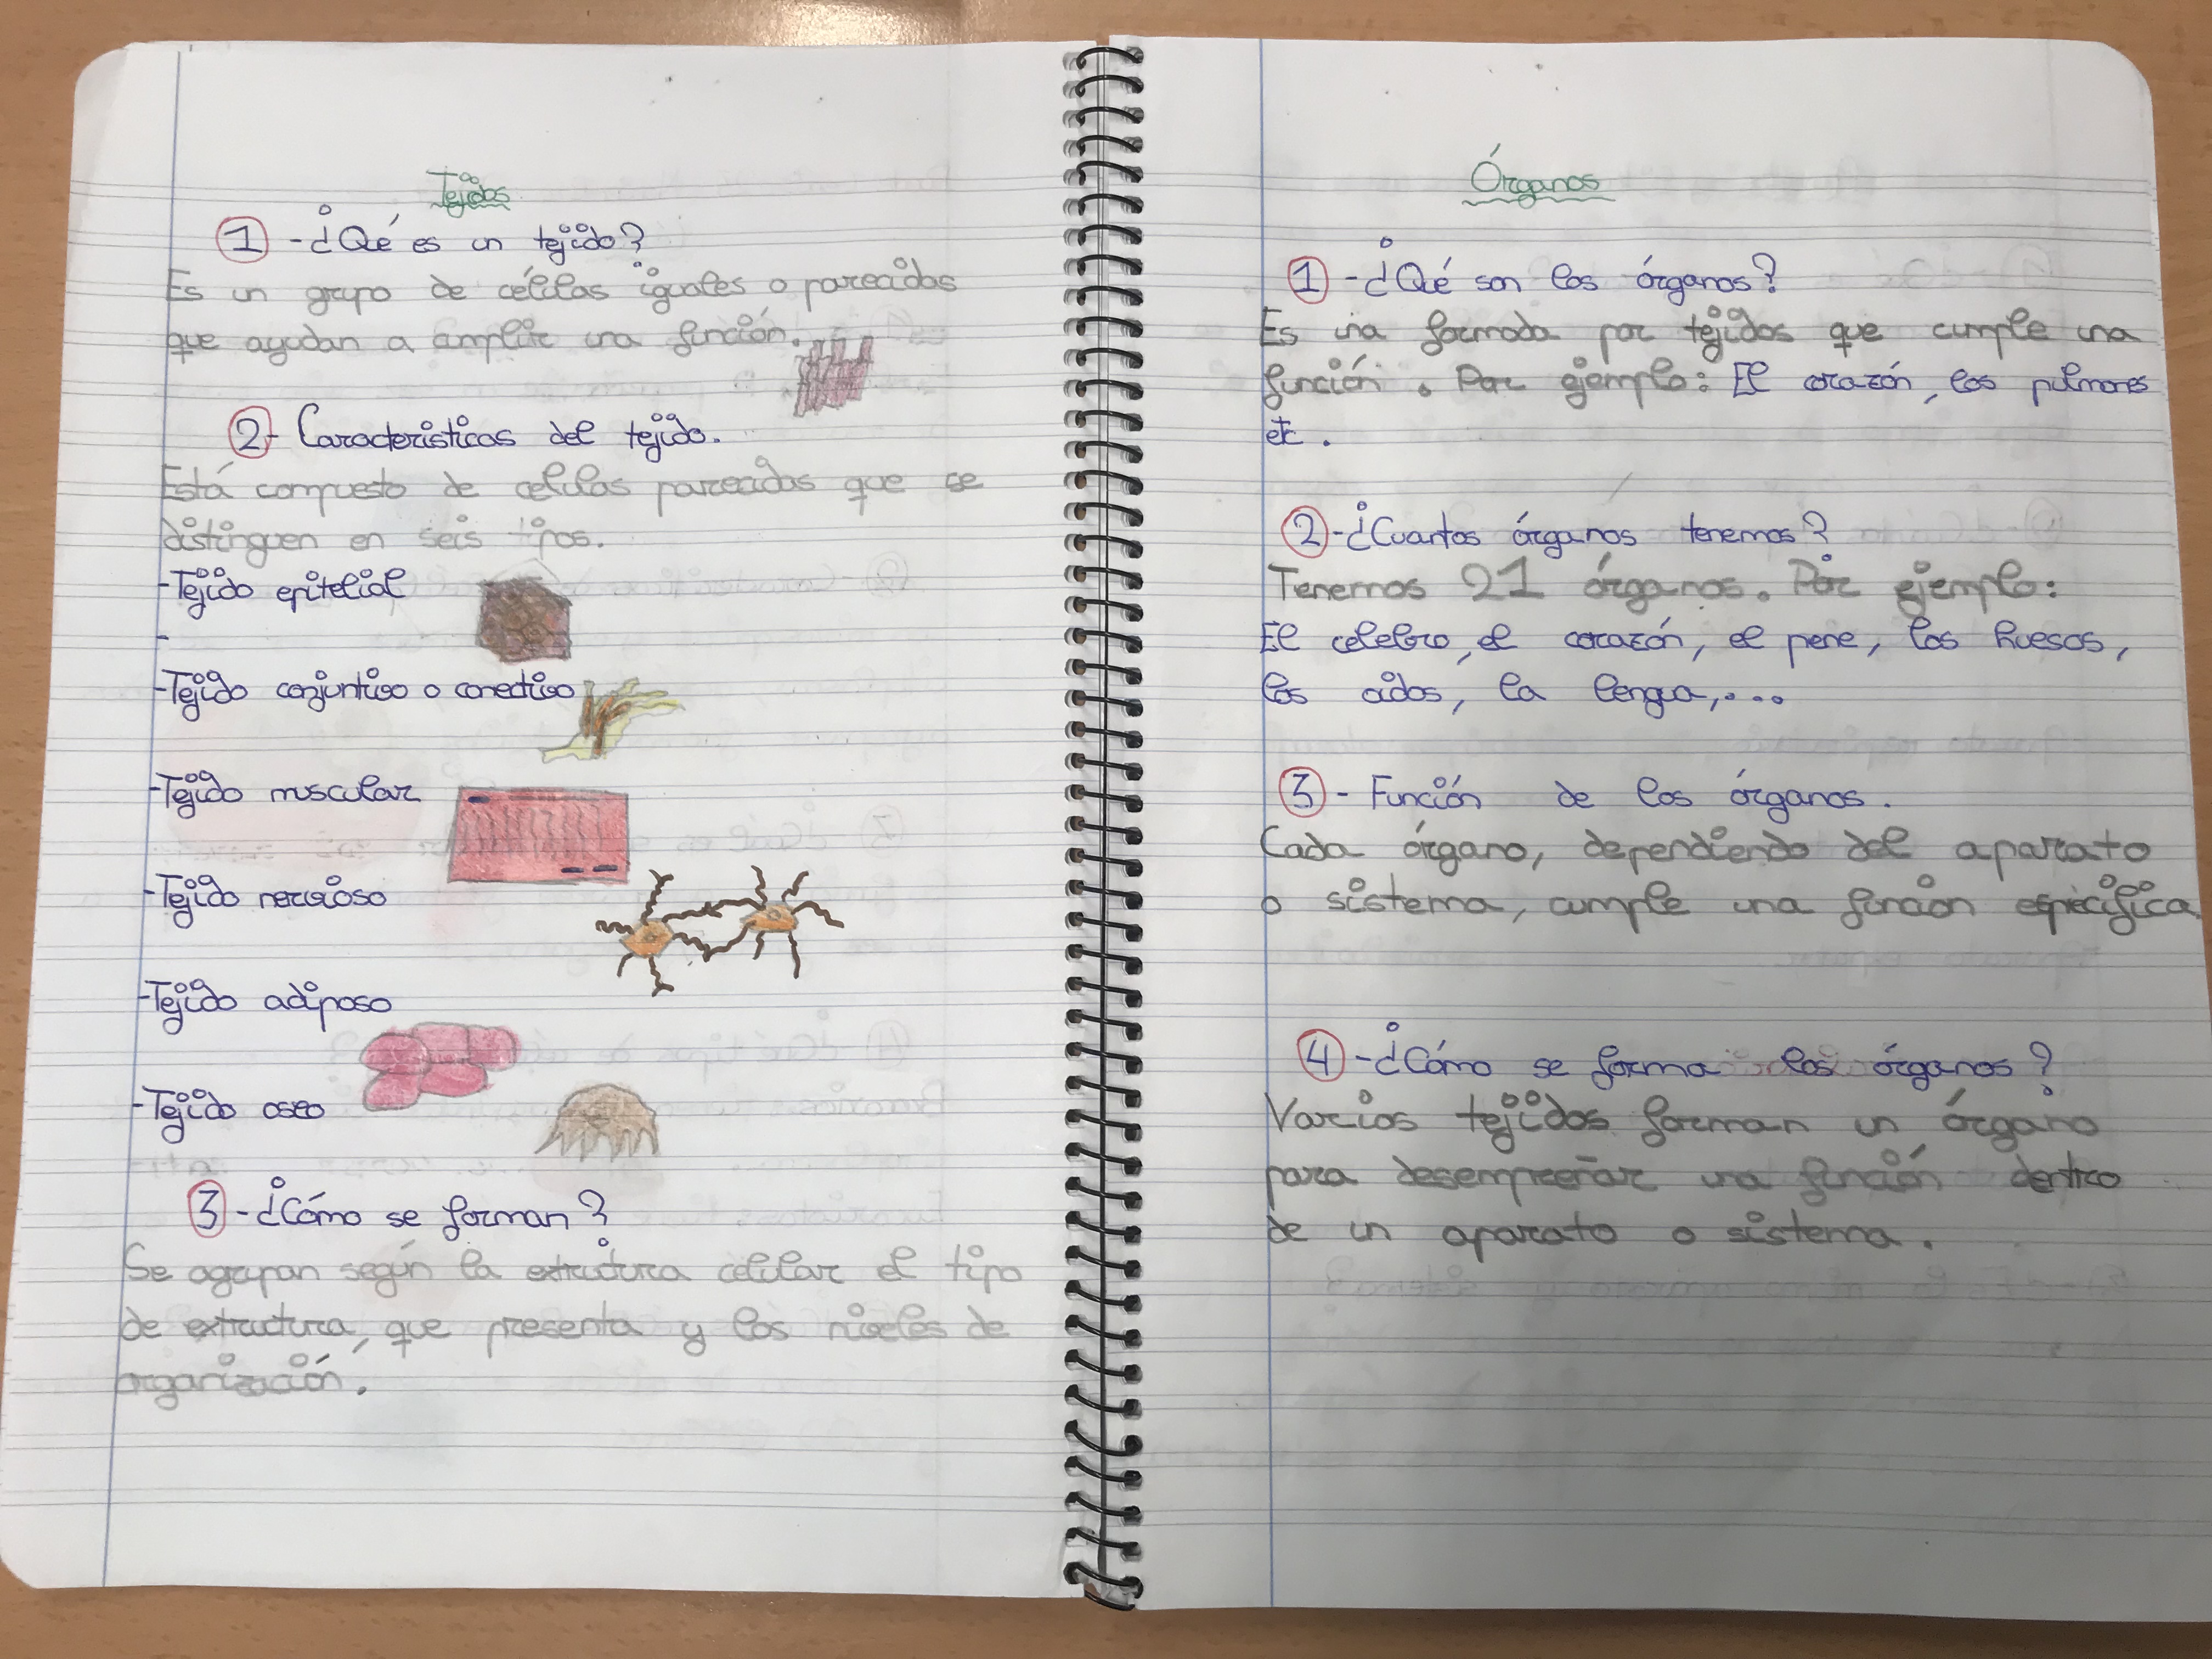 Tejidos
1 - ¿Qué es un tejido?
Es un grupo de células iguales o parecidas
que ayudan a cumplir una función.
2- Características del tejido.
Está compuesto de celulas parecidas que se
distinguen en seis tipos.
-Tejido epitelial
-
-Tejido conjuntivo o conectivo
-Tejido muscular
-Tejido nervioso
-Tejido adiposo
-Tejido oseo
3 - ¿Cómo se forman?
Se agrupan según la extructura celular el tipo
de extructura, que presenta y los niveles de
organización.
Órganos
1 - ¿Qué son los órganos?
Es una formada por tejidos que cumple una
función. Por ejemplo: El corazón, los pulmones
etc.
2 - ¿Cuantos órganos tenemos?
Tenemos 21 órganos. Por ejemplo:
El celebro, el corazón, el pene, los huesos,
los oidos, la lengua,...
3 - Función de los órganos.
Cada órgano, dependiendo del aparato
o sistema, cumple una funcion especifica.
4 - ¿Cómo se forma los órganos?
Varios tejidos forman un órgano
para desempreñar una función dentro
de un aparato o sistema.